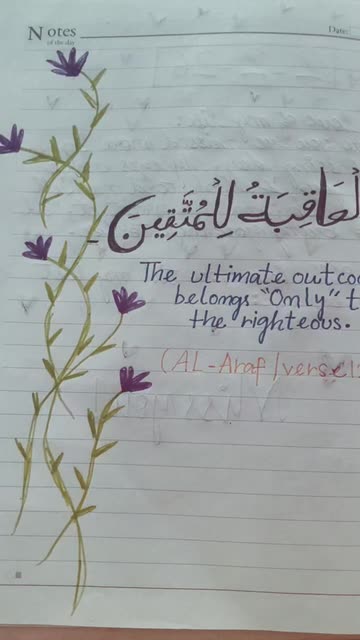 Notes
of the day
Date:
لعاقبَةُ لِلْمُتَّقِينَ
The ultimate outco
belongs "Only" t
the righteous.
(AL-Araf/verse: